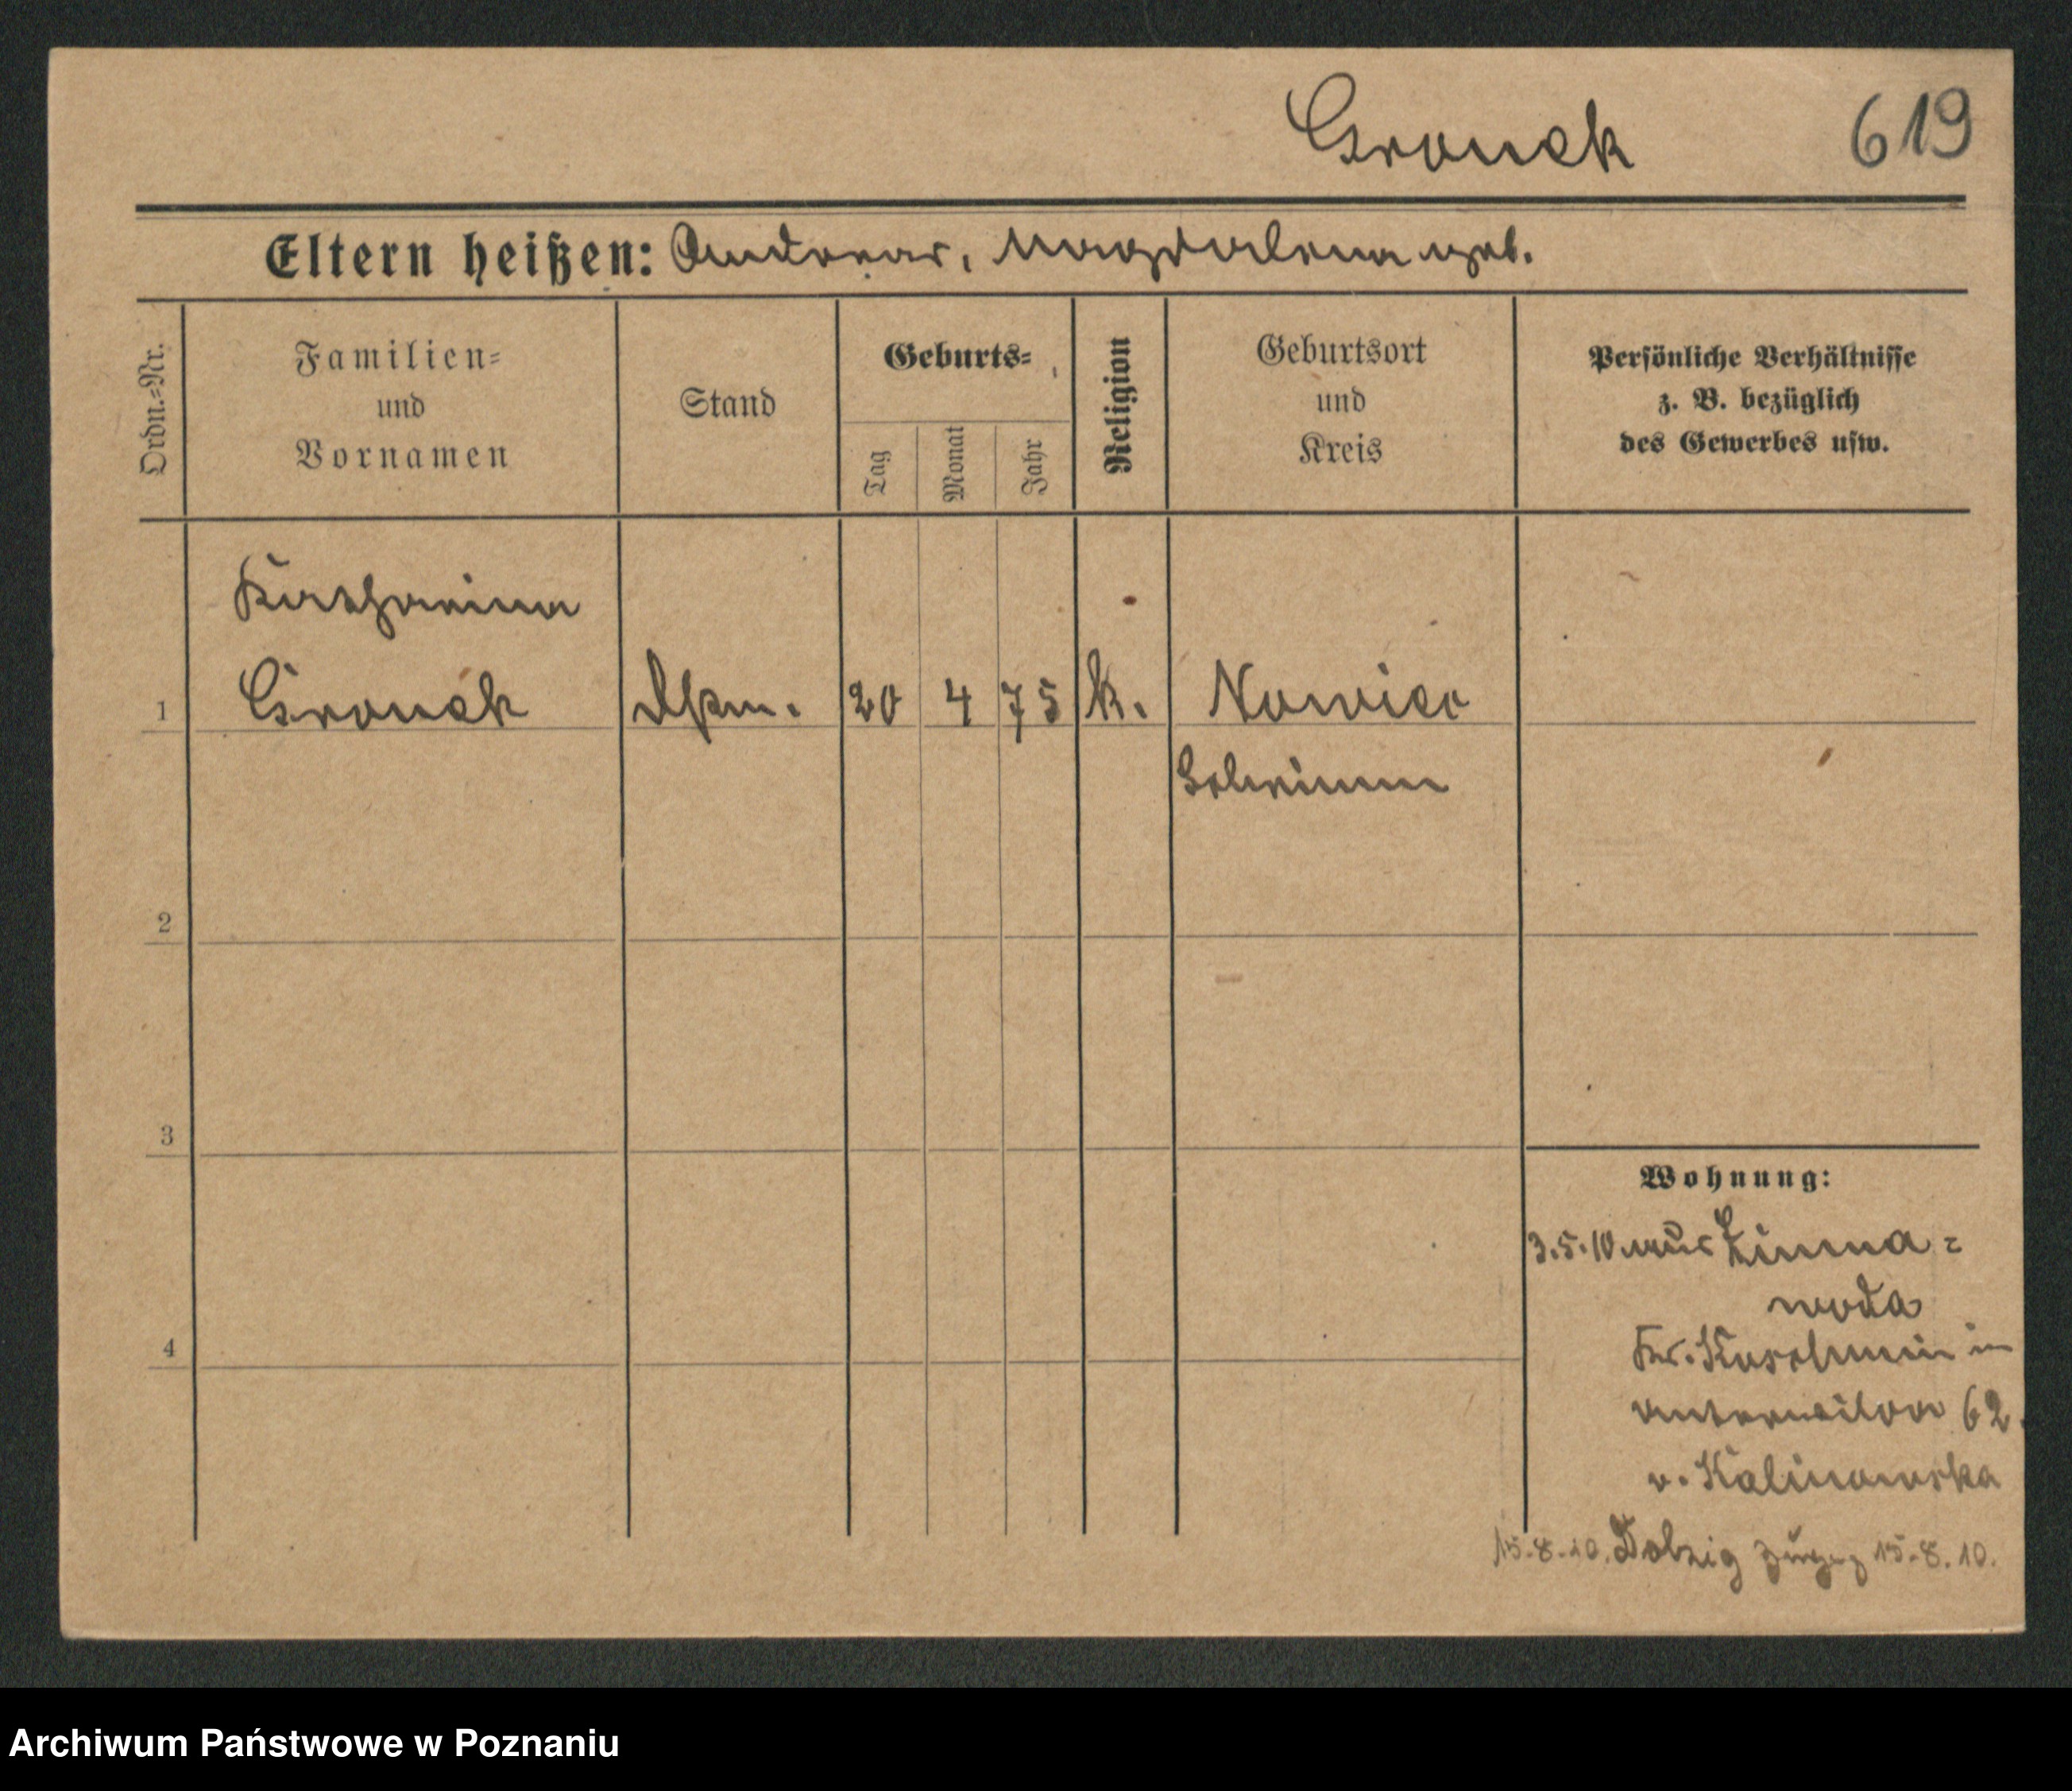 Gronek 619
Eltern heißen: Andreas, Magdalena geb.
Ordn.=Nr.
Familien=
und
Vornamen
Stand
Geburts=
Tag
Monat
Jahr
Religion
Geburtsort
und
Kreis
Persönliche Verhältnisse
z. B. bezüglich
des Gewerbes usw.
Katharina
1 Gronek 20 4 75 k.
Schrimm
2
3
4
Wohnung:
3.5.10 aus Zimna=
woda
Kr. Koschmin in
62.
v. Kalinowska
15.8.10. Dolzig 15.8.10.
Archiwum Państwowe w Poznaniu